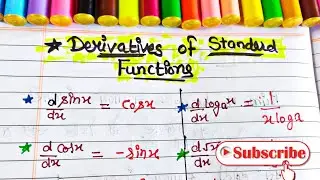 ★ Derivatives of Standard
Functions
★ d sinx/dx = cosx
★ d logₐx/dx = 1/xloga
★ d cosx/dx = -sinx
★ d√x/dx
Subscribe